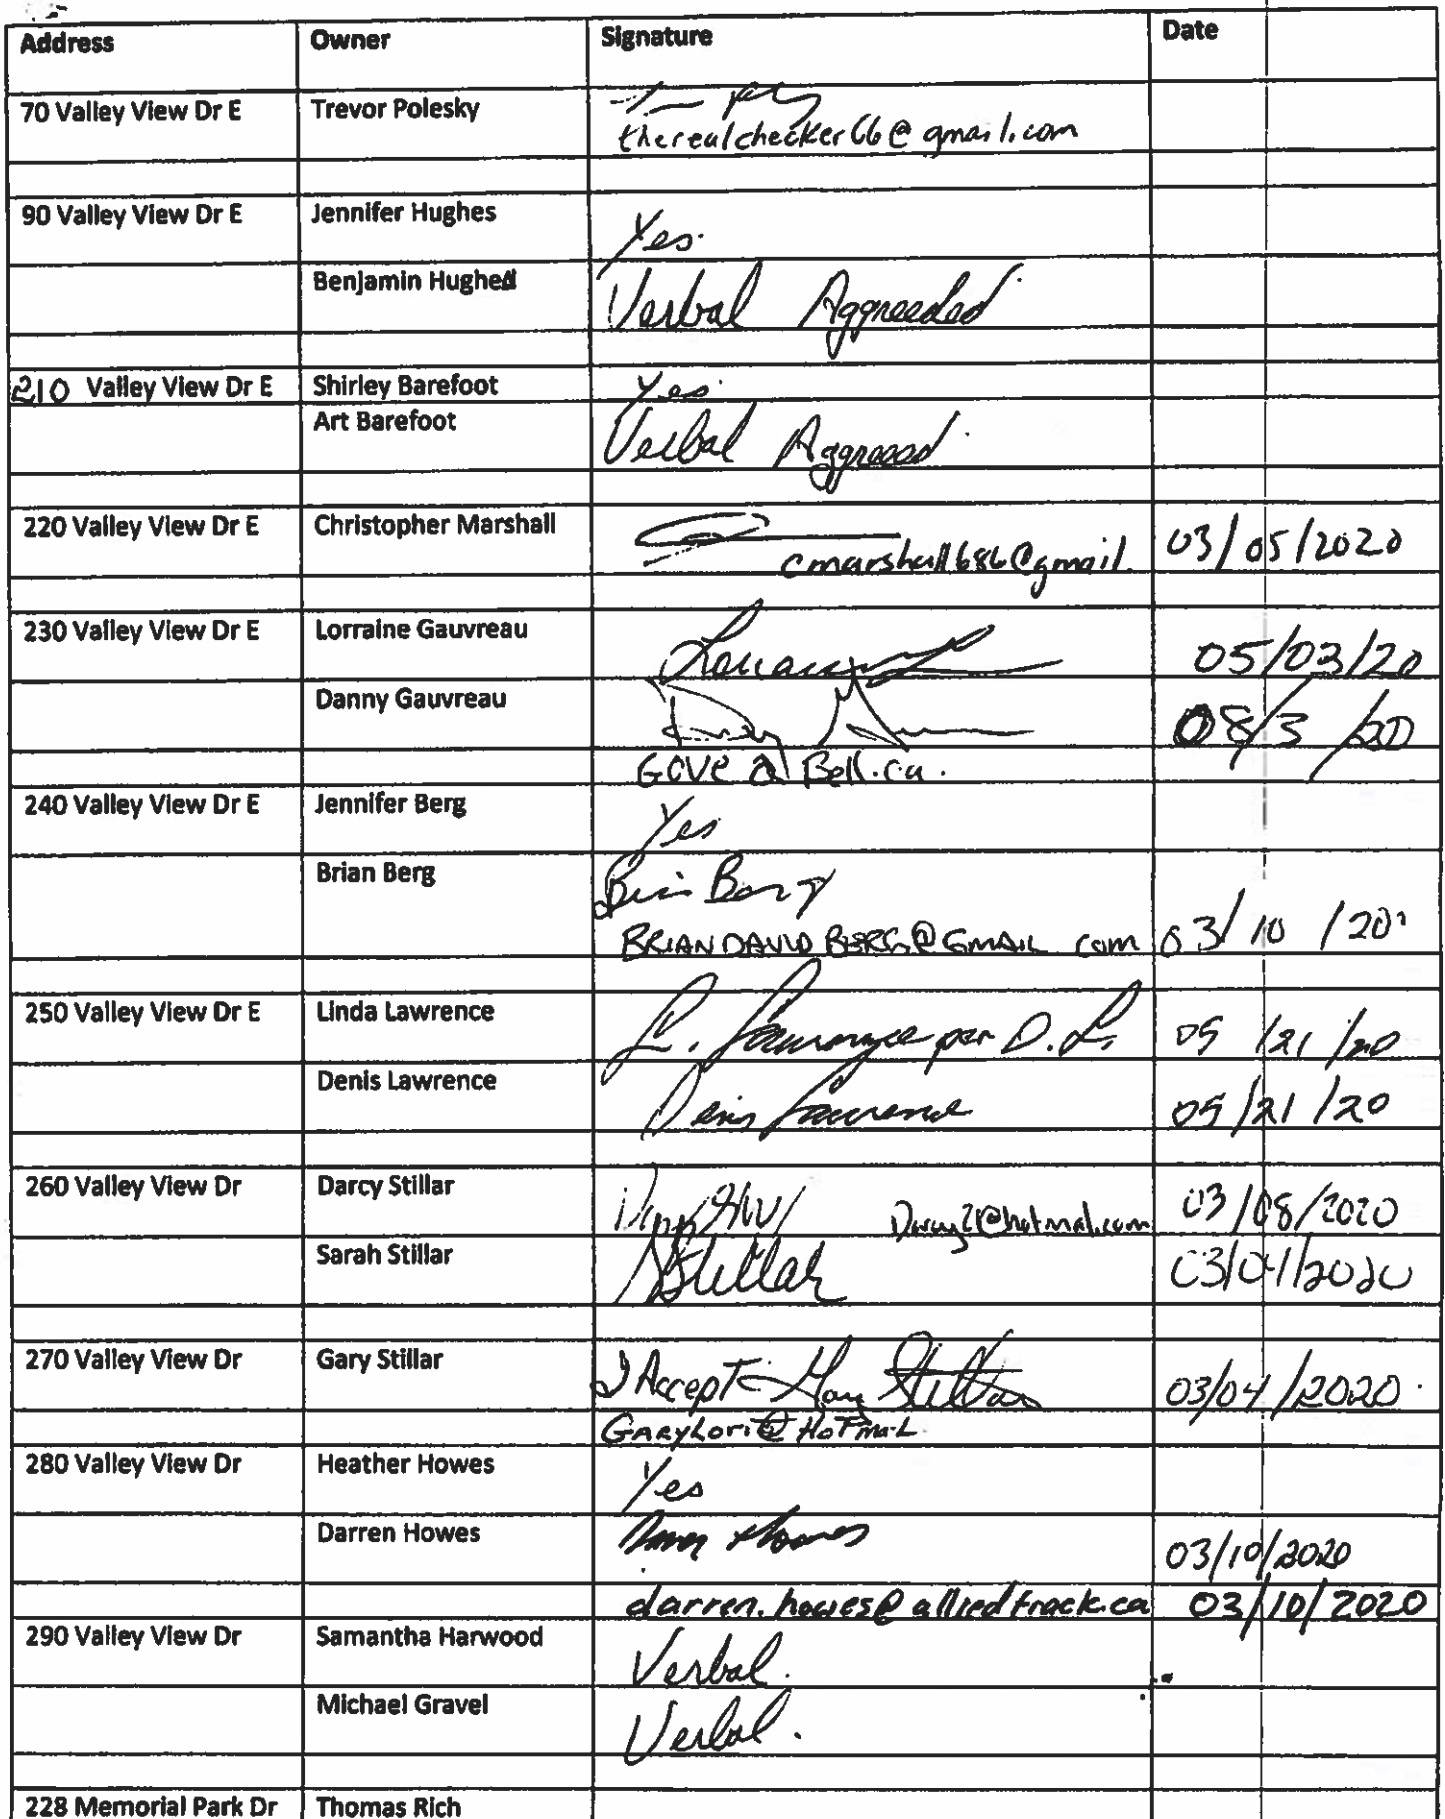 Address Owner Signature Date
70 Valley View Dr E Trevor Polesky
therealchecker66@gmail.com
90 Valley View Dr E Jennifer Hughes Yes.
Benjamin Hughes Verbal Aggreeded
210 Valley View Dr E Shirley Barefoot Yes.
Art Barefoot Verbal Aggreeed
220 Valley View Dr E Christopher Marshall 03/05/2020
cmarshall686@gmail.
230 Valley View Dr E Lorraine Gauvreau 05/03/20
Danny Gauvreau 08/3/20
GOVE @ Bell.ca.
240 Valley View Dr E Jennifer Berg Yes
Brian Berg Brian Berg
BRIANDAVIDBERG@GMAIL com 03/10/20
250 Valley View Dr E Linda Lawrence L. Lawrence per D.L. 05/21/20
Denis Lawrence Denis Lawrence 05/21/20
260 Valley View Dr Darcy Stillar 03/08/2020
Sarah Stillar SStillar 03/04/2020
270 Valley View Dr Gary Stillar I Accept - Gary Stillar 03/04/2020
GARYLori@HoTmaiL
280 Valley View Dr Heather Howes Yes
Darren Howes Darren Howes 03/10/2020
darren.howes@alliedtrack.ca 03/10/2020
290 Valley View Dr Samantha Harwood Verbal.
Michael Gravel Verbal.
228 Memorial Park Dr Thomas Rich